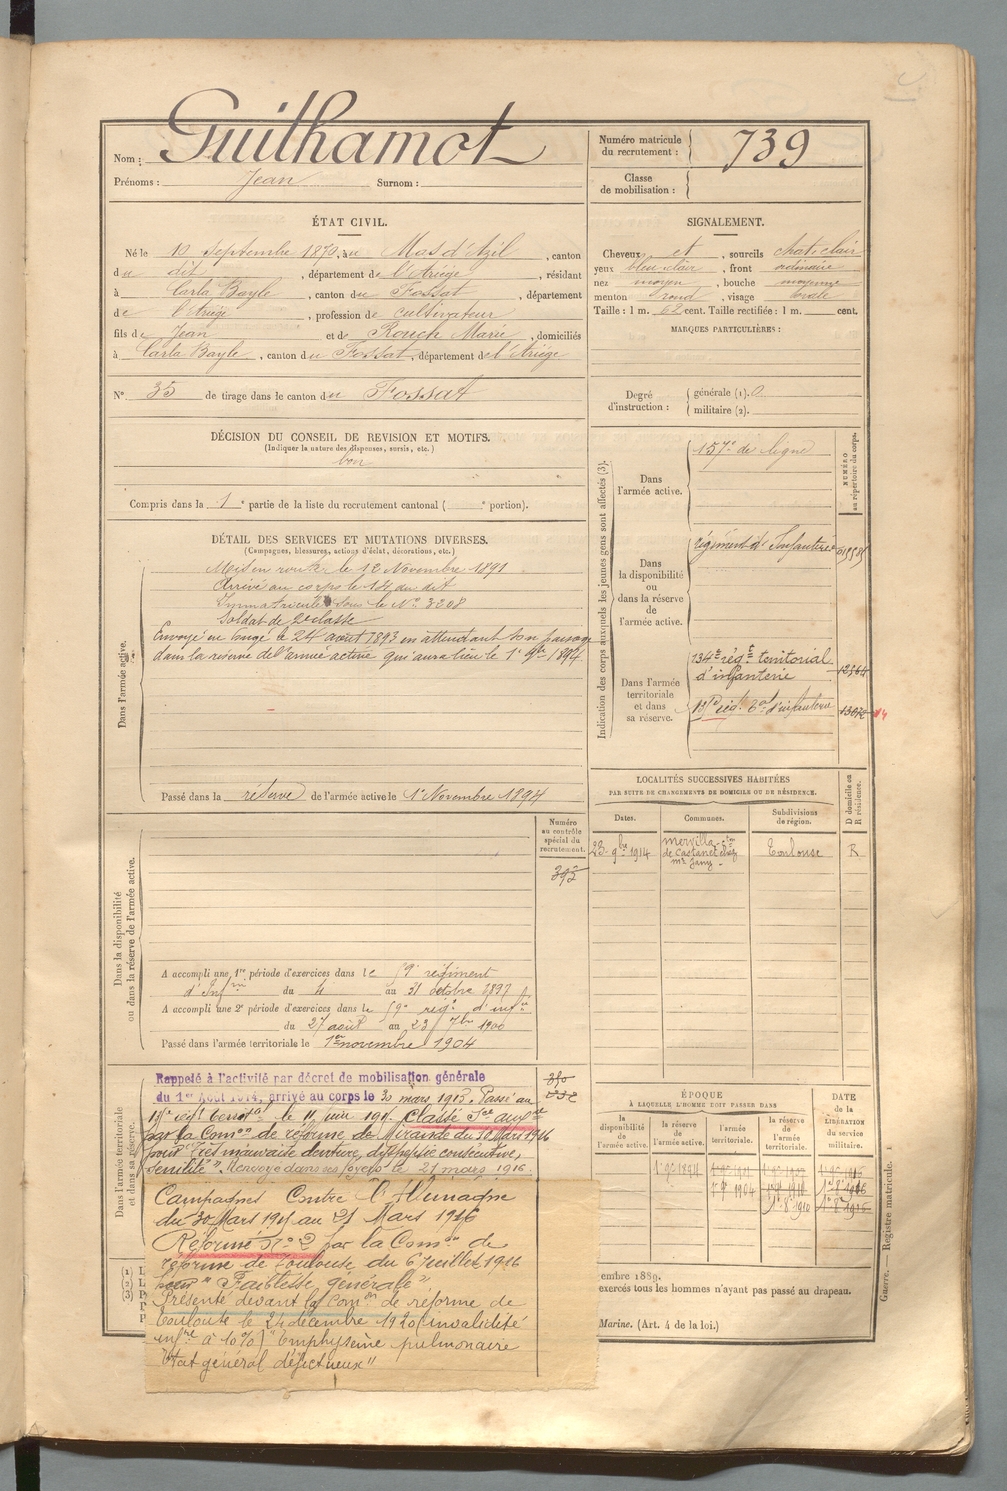 Nom : Guilhamot
Prénoms : Jean Surnom :
Numéro matricule du recrutement : 739
Classe de mobilisation :
ÉTAT CIVIL.
Né le 10 Septembre 1870, à u Mas d'Azil, canton
du dit, département de l'Ariège, résidant
à Carla Bayle, canton du Fossat, département
de l'Ariège, profession de cultivateur
fils de Jean et de Rouch Marie, domiciliés
à Carla Bayle, canton du Fossat, département de l'Ariège
N° 35 de tirage dans le canton du Fossat
SIGNALEMENT.
Cheveux et, sourcils chat. clair
yeux bleu clair, front ordinaire
nez moyen, bouche moyenne
menton rond, visage ovale
Taille : 1 m. 62 cent. Taille rectifiée : 1 m. cent.
MARQUES PARTICULIÈRES :
Degré d'instruction :
générale (1). 0
militaire (2).
DÉCISION DU CONSEIL DE REVISION ET MOTIFS.
(Indiquer la nature des dispenses, sursis, etc.)
bon
Compris dans la 1e partie de la liste du recrutement cantonal ( e portion).
DÉTAIL DES SERVICES ET MUTATIONS DIVERSES.
(Campagnes, blessures, actions d'éclat, décorations, etc.)
Dans l'armée active.
Mis en route le 12 Novembre 1891
Arrivé au corps le 14 du dit
Immatriculé sous le N° 3208
Soldat de 2e classe
Envoyé en congé le 24 août 1893 en attendant son passage
dans la réserve de l'armée active qui aura lieu le 1er 9bre 1894
Passé dans la réserve de l'armée active le 1er Novembre 1894
Indication des corps auxquels les jeunes gens sont affectés (3).
NUMÉRO au répertoire du corps.
Dans l'armée active.
157e de ligne
Dans la disponibilité ou dans la réserve de l'armée active.
régiment d'Infanterie
Dans l'armée territoriale et dans sa réserve.
134e régt territorial
d'infanterie 12364
régt tal d'infanterie
LOCALITÉS SUCCESSIVES HABITÉES
PAR SUITE DE CHANGEMENTS DE DOMICILE OU DE RÉSIDENCE.
Dates. Communes. Subdivisions de région. D domicile ou R résidence.
23 9bre 1914 Mervilla
de Castanet chez Toulouse R
Dans la disponibilité ou dans la réserve de l'armée active.
Numéro au contrôle spécial du recrutement.
392
A accompli une 1re période d'exercices dans le 59e régiment
d'Infrie du 4 au 31 octobre 1897
A accompli une 2e période d'exercices dans le 59e régt d'infie
du 27 août au 23 7bre 1900
Passé dans l'armée territoriale le 1er novembre 1904
Dans l'armée territoriale et dans sa réserve.
Rappelé à l'activité par décret de mobilisation générale
du 1er Août 1914, arrivé au corps le 30 mars 1915. Passé au
le 11 juin 1915 classé Sce auxre
par la Comon de réforme de Mirande du 10 Mars 1916
pour "très mauvaise denture, dyspepsie consécutive,
sénilité". Renvoyé dans ses foyers le 21 mars 1916.
Campagnes Contre l'Allemagne
du 30 Mars 1915 au 21 Mars 1916
Réformé N° 2 par la Comon de
réforme de Toulouse du 6 juillet 1916
pour "Faiblesse générale"
Présenté devant la Comon de réforme de
Toulouse le 24 décembre 1920 (invalidité
infre à 10%) "Emphysème pulmonaire
Etat général défectueux"
ÉPOQUE
À LAQUELLE L'HOMME DOIT PASSER DANS
la disponibilité de l'armée active. la réserve de l'armée active. l'armée territoriale. la réserve de l'armée territoriale.
DATE de la LIBÉRATION du service militaire.
1er 9bre 1894
embre 1889.
exercés tous les hommes n'ayant pas passé au drapeau.
Marine. (Art. 4 de la loi.)
Guerre. — Registre matricule.